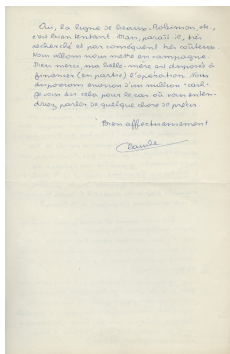 Oui, la ligne de Sceaux, Robinson etc.,
c'est bien tentant. Mais, paraît-il, très
recherché et par conséquent très coûteux.
Nous allons nous mettre en campagne.
Dieu merci, ma belle-mère est disposée à
financer (en partie) l'opération. Nous
disposerons environ d'un million
Je vous dis cela pour le cas où vous enten-
driez parler de quelque chose de précis.
Bien affectueusement
Claude